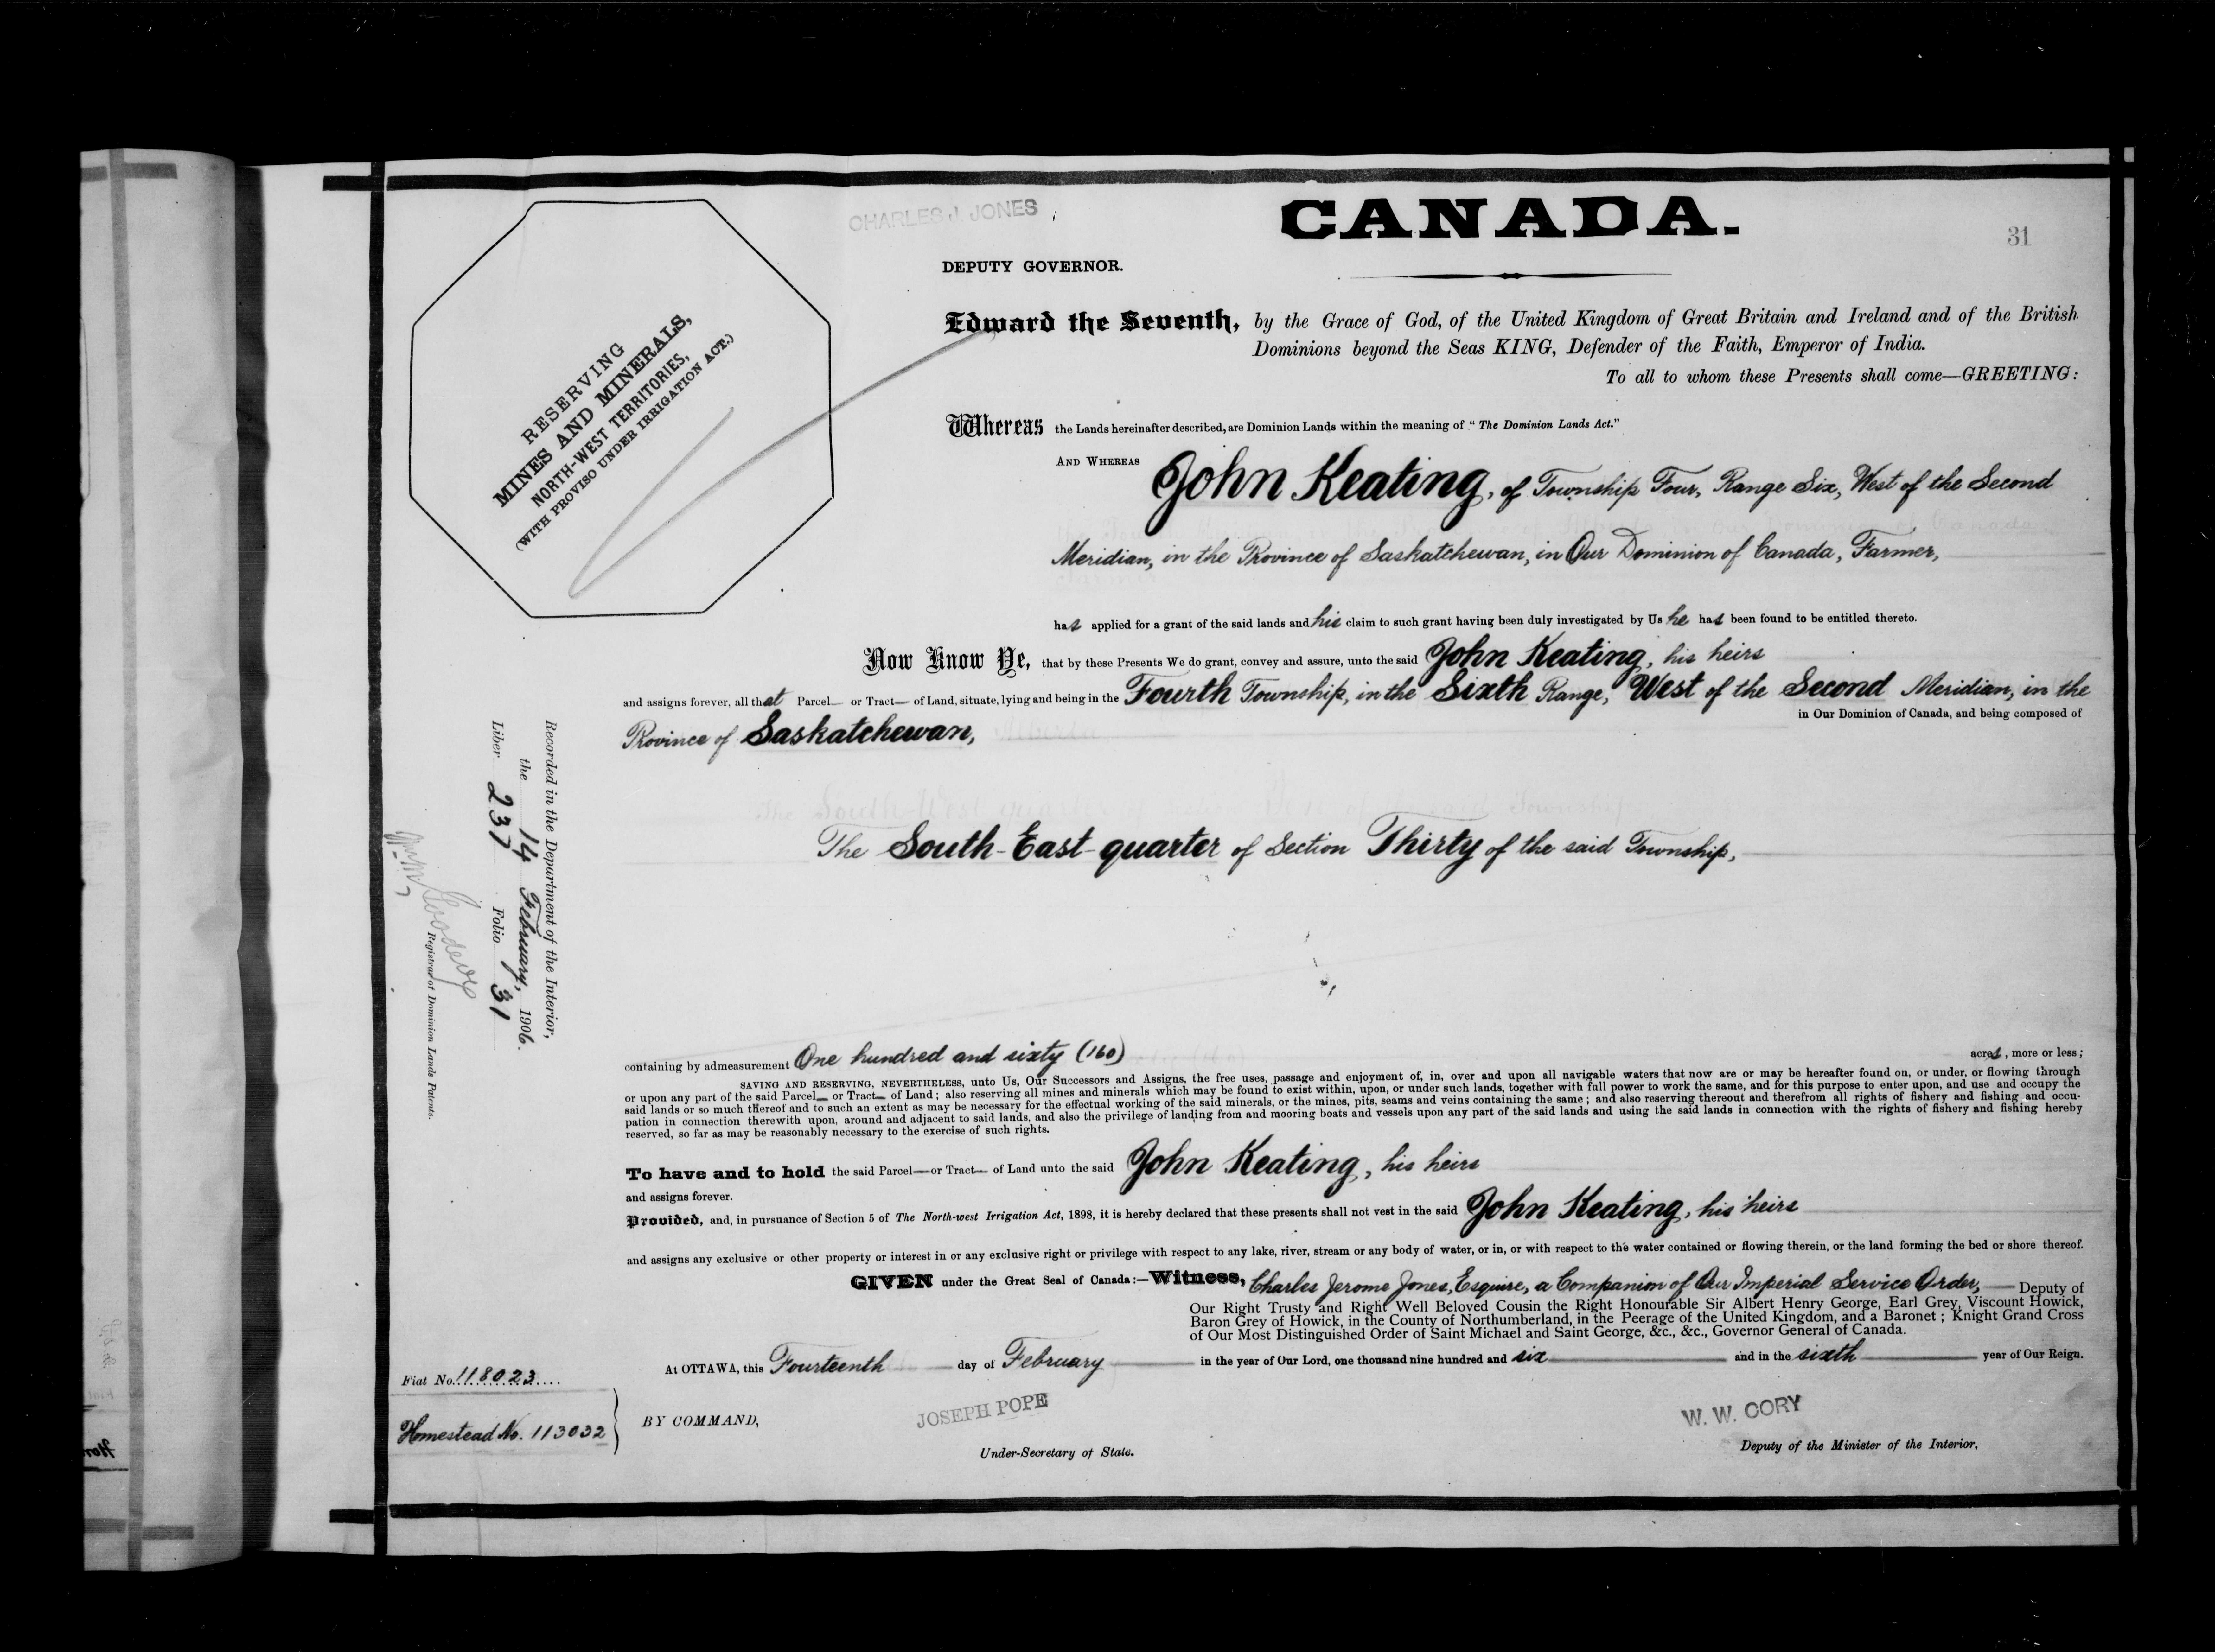 CHARLES J. JONES
CANADA.
31
DEPUTY GOVERNOR.
RESERVING
MINES AND MINERALS,
NORTH-WEST TERRITORIES,
(WITH PROVISO UNDER IRRIGATION ACT.)
Edward the Seventh, by the Grace of God, of the United Kingdom of Great Britain and Ireland and of the British
Dominions beyond the Seas KING, Defender of the Faith, Emperor of India.
To all to whom these Presents shall come—GREETING:
Whereas the Lands hereinafter described, are Dominion Lands within the meaning of "The Dominion Lands Act."
AND WHEREAS John Keating, of Township Four, Range Six, West of the Second
Meridian, in the Province of Saskatchewan, in Our Dominion of Canada, Farmer,
has applied for a grant of the said lands and his claim to such grant having been duly investigated by Us he has been found to be entitled thereto.
Now Know Ye, that by these Presents We do grant, convey and assure, unto the said John Keating, his heirs
and assigns forever, all that Parcel— or Tract— of Land, situate, lying and being in the Fourth Township, in the Sixth Range, West of the Second Meridian, in the
Province of Saskatchewan, in Our Dominion of Canada, and being composed of
The South-East-quarter of Section Thirty of the said Township,
containing by admeasurement One hundred and sixty (160) acres, more or less;
SAVING AND RESERVING, NEVERTHELESS, unto Us, Our Successors and Assigns, the free uses, passage and enjoyment of, in, over and upon all navigable waters that now are or may be hereafter found on, or under, or flowing through
or upon any part of the said Parcel— or Tract— of Land; also reserving all mines and minerals which may be found to exist within, upon, or under such lands, together with full power to work the same, and for this purpose to enter upon, and use and occupy the
said lands or so much thereof and to such an extent as may be necessary for the effectual working of the said minerals, or the mines, pits, seams and veins containing the same; and also reserving thereout and therefrom all rights of fishery and fishing and occu-
pation in connection therewith upon, around and adjacent to said lands, and also the privilege of landing from and mooring boats and vessels upon any part of the said lands and using the said lands in connection with the rights of fishery and fishing hereby
reserved, so far as may be reasonably necessary to the exercise of such rights.
To have and to hold the said Parcel—or Tract— of Land unto the said John Keating, his heirs
and assigns forever.
Provided, and, in pursuance of Section 5 of The North-west Irrigation Act, 1898, it is hereby declared that these presents shall not vest in the said John Keating, his heirs
and assigns any exclusive or other property or interest in or any exclusive right or privilege with respect to any lake, river, stream or any body of water, or in, or with respect to the water contained or flowing therein, or the land forming the bed or shore thereof.
GIVEN under the Great Seal of Canada:—Witness, Charles Jerome Jones, Esquire, a Companion of Our Imperial Service Order,— Deputy of
Our Right Trusty and Right Well Beloved Cousin the Right Honourable Sir Albert Henry George, Earl Grey, Viscount Howick,
Baron Grey of Howick, in the County of Northumberland, in the Peerage of the United Kingdom, and a Baronet; Knight Grand Cross
of Our Most Distinguished Order of Saint Michael and Saint George, &c., &c., Governor General of Canada.
At OTTAWA, this Fourteenth day of February in the year of Our Lord, one thousand nine hundred and six and in the sixth year of Our Reign.
BY COMMAND,
JOSEPH POPE
Under-Secretary of State.
W. W. CORY
Deputy of the Minister of the Interior.
Fiat No. 118023
Homestead No. 113032
Recorded in the Department of the Interior,
the 14 February, 1906.
Liber 237 Folio 31
Registrar of Dominion Lands Patents.